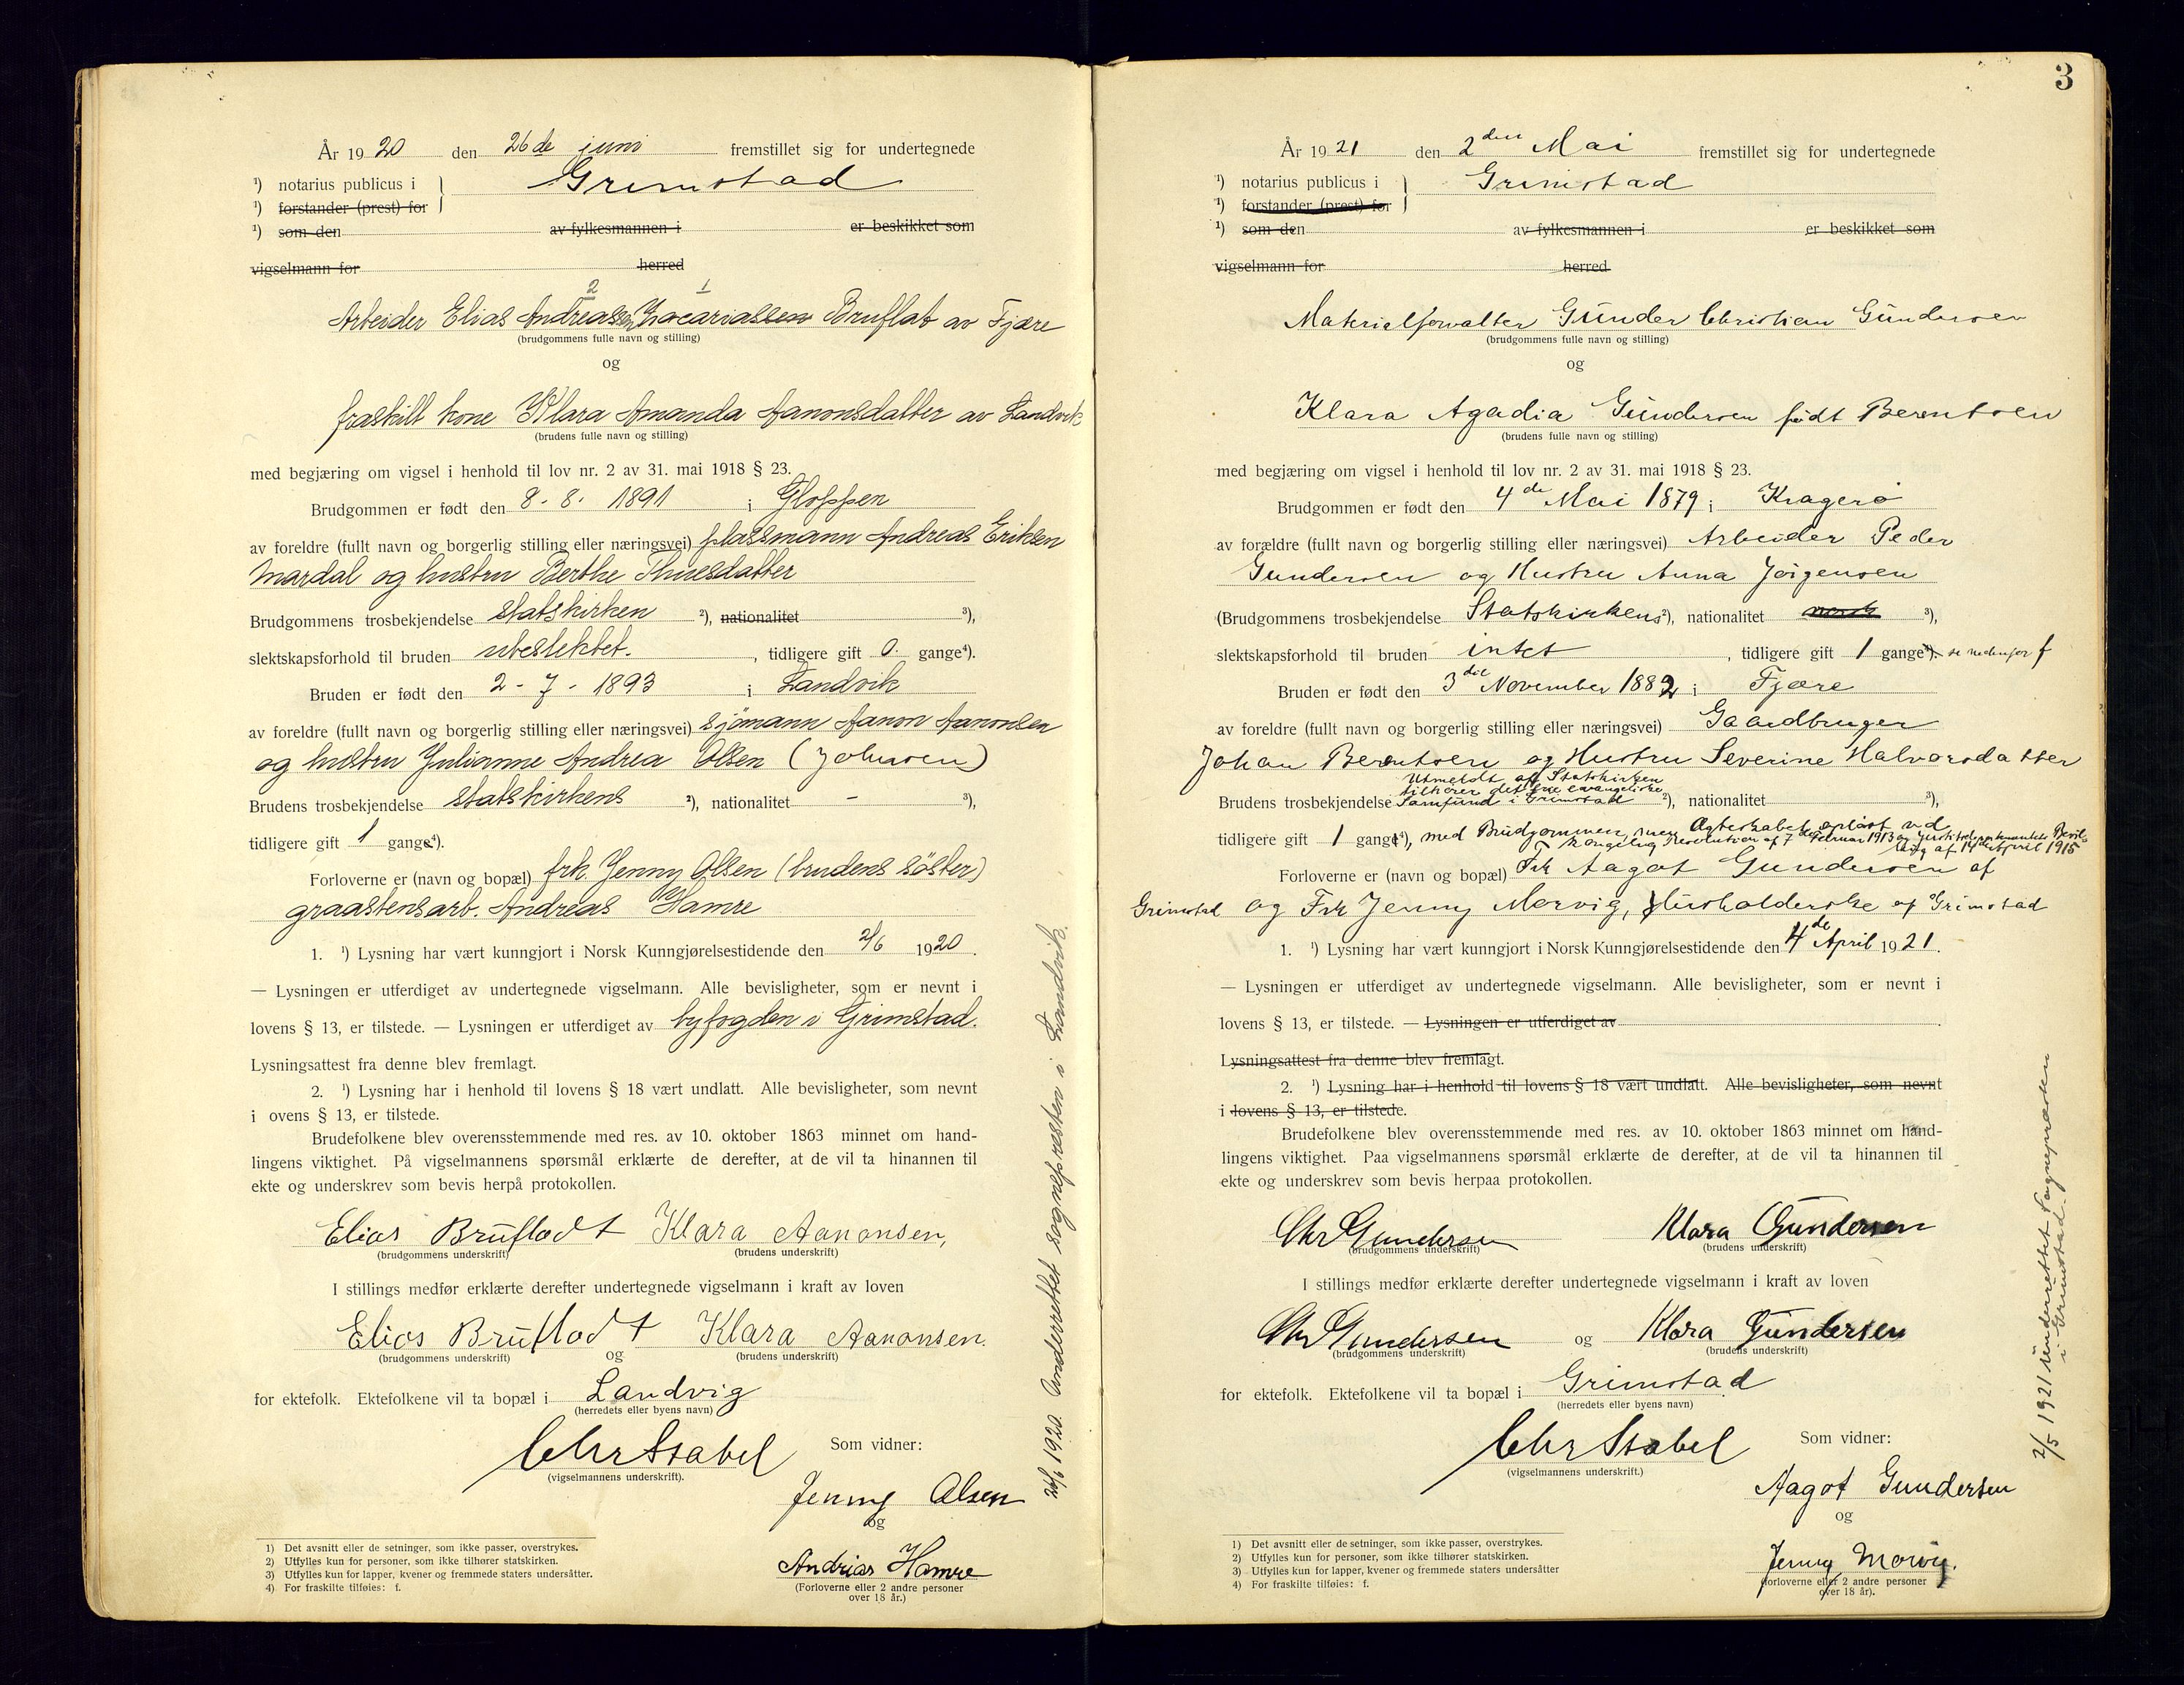 År 1920 den 26de juni fremstillet sig for undertegnede
¹) notarius publicus i } Grimstad
¹) forstander (prest) for
¹) som den av fylkesmannen i er beskikket som
vigselmann for herred
2 1
Arbeider Elias Andreassen Zacariassen Bruflat av Fjære
(brudgommens fulle navn og stilling)
og
fraskilt kone Klara Amanda Aanonsdatter av Landvik
(brudens fulle navn og stilling)
med begjæring om vigsel i henhold til lov nr. 2 av 31. mai 1918 § 23.
Brudgommen er født den 8. 8. 1891 i Gloppen
av foreldre (fullt navn og borgerlig stilling eller næringsvei) plassmann Andreas Eriksen
Mardal og hustru Berthe Thuesdatter
Brudgommens trosbekjendelse statskirken ²), nationalitet ³),
slektskapsforhold til bruden ubeslektet. , tidligere gift 0. gange⁴).
Bruden er født den 2 - 7 - 1893 i Landvik
av foreldre (fullt navn og borgerlig stilling eller næringsvei) sjömann Aanon Aanonsen
og hustru Julianne Andrea Olsen (Johnsen)
Brudens trosbekjendelse statskirkens ²), nationalitet - ³),
tidligere gift 1 gange⁴).
Forloverne er (navn og bopæl) frk. Jenny Olsen (brudens söster)
graastensarb. Andreas Hamre
1. ¹) Lysning har vært kunngjort i Norsk Kunngjørelsestidende den 2/6 1920.
— Lysningen er utferdiget av undertegnede vigselmann. Alle bevisligheter, som er nevnt i
lovens § 13, er tilstede. — Lysningen er utferdiget av byfogden i Grimstad.
Lysningsattest fra denne blev fremlagt.
2. ¹) Lysning har i henhold til lovens § 18 vært undlatt. Alle bevisligheter, som nevnt
i ovens § 13, er tilstede.
Brudefolkene blev overensstemmende med res. av 10. oktober 1863 minnet om hand-
lingens viktighet. På vigselmannens spørsmål erklærte de derefter, at de vil ta hinannen til
ekte og underskrev som bevis herpå protokollen.
Elias Bruflodt Klara Aanonsen,
(brudgommens underskrift) (brudens underskrift)
I stillings medfør erklærte derefter undertegnede vigselmann i kraft av loven
Elias Bruflodt og Klara Aanonsen.
(brudgommens underskrift) (brudens underskrift)
for ektefolk. Ektefolkene vil ta bopæl i Landvig
(herredets eller byens navn)
Chr Stabel Som vidner:
(vigselmannens underskrift).
Jenny Olsen
og
Andrias Hamre
(Forloverne eller 2 andre personer
over 18 år.)
1) Det avsnitt eller de setninger, som ikke passer, overstrykes.
2) Utfylles kun for personer, som ikke tilhører statskirken.
3) Utfylles kun for lapper, kvener og fremmede staters undersåtter.
4) For fraskilte tilføies: f.
26/6 1920. Underrettet sognepresten i Landvik.
3
År 1921 den 2den Mai fremstillet sig for undertegnede
¹) notarius publicus i } Grimstad
¹) forstander (prest) for
¹) som den av fylkesmannen i er beskikket som
vigselmann for herred
Materialforvalter Gunder Christian Gundersen
(brudgommens fulle navn og stilling)
og
Klara Agadia Gundersen født Berentsen
(brudens fulle navn og stilling)
med begjæring om vigsel i henhold til lov nr. 2 av 31. mai 1918 § 23.
Brudgommen er født den 4de Mai 1879 i Kragerø
av forældre (fullt navn og borgerlig stilling eller næringsvei) Arbeider Peder
Gundersen og Hustru Anna Jørgensen
(Brudgommens trosbekjendelse Statskirkens ²), nationalitet norsk ³),
slektskapsforhold til bruden intet , tidligere gift 1 gange⁴). se nedenfor f
Bruden er født den 3die November 1882 i Fjære
av foreldre (fullt navn og borgerlig stilling eller næringsvei) Gaardbruger
Johan Berentsen og Hustru Severine Halvorsdatter
Utmeldt af Statskirken
tilhører det frie evangeliske
Brudens trosbekjendelse Samfund i Grimstad ²), nationalitet ³),
tidligere gift 1 gange⁴), med Brudgommen, men Ægteskabet opløst ved
kongelig Resolution af 7de Februar 1913 og Justitsdepartementets Bevil-
ling af 14de April 1915
Forloverne er (navn og bopæl) Frk Aagot Gundersen af
Grimstad og Frk Jenny Morvig, Husholderske af Grimstad
1. ¹) Lysning har vært kunngjort i Norsk Kunngjørelsestidende den 4de April 1921.
— Lysningen er utferdiget av undertegnede vigselmann. Alle bevisligheter, som er nevnt i
lovens § 13, er tilstede. — Lysningen er utferdiget av
Lysningsattest fra denne blev fremlagt.
2. ¹) Lysning har i henhold til lovens § 18 vært undlatt. Alle bevisligheter, som nevnt
i lovens § 13, er tilstede.
Brudefolkene blev overensstemmende med res. av 10. oktober 1863 minnet om hand-
lingens viktighet. Paa vigselmannens spørsmål erklærte de derefter, at de vil ta hinannen til
ekte og underskrev som bevis herpaa protokollen.
Chr Gundersen Klara Gundersen
(brudgommens underskrift) (brudens underskrift)
I stillings medfør erklærte derefter undertegnede vigselmann i kraft av loven
Chr Gundersen og Klara Gundersen
(brudgommens underskrift) (brudens underskrift)
for ektefolk. Ektefolkene vil ta bopæl i Grimstad
(herredets eller byens navn)
Chr Stabel Som vidner:
(vigselmannens underskrift.)
Aagot Gundersen
og
Jenny Morvig.
(forloverne eller 2 andre personer
over 18 år).
1) Det avsnitt eller de setninger, som ikke passer, overstrykes.
2) Utfylles kun for personer, som ikke tilhører statskirken.
3) Utfylles kun for lapper, kvener og fremmede staters undersåtter
4) For fraskilte tilføies: f.
2/5 1921 underrettet Sognepræsten
i Grimstad.